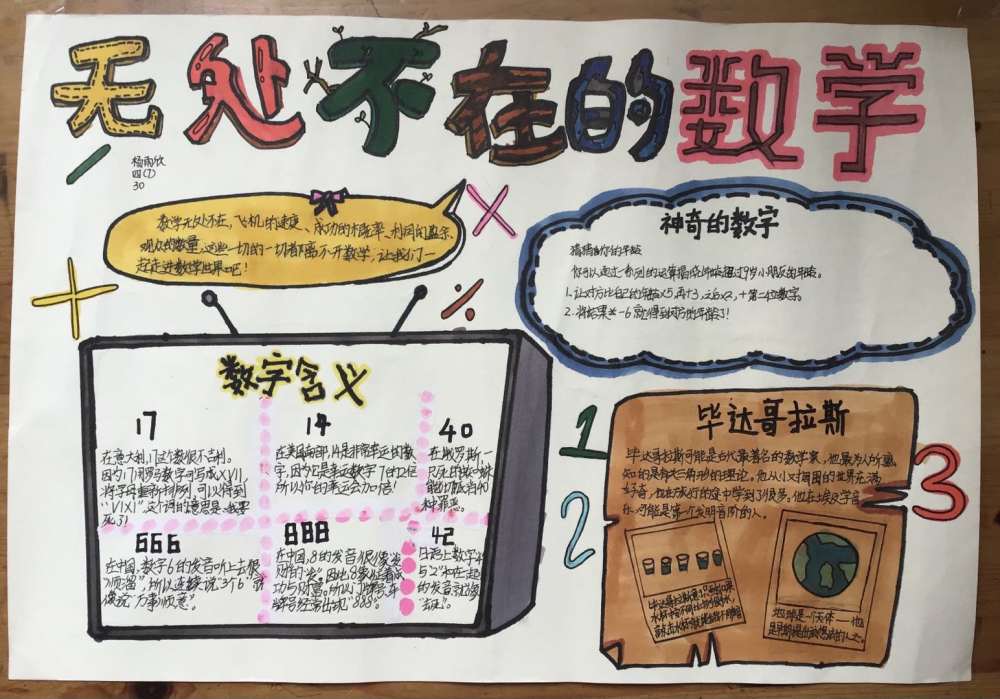 无处不在的数学
杨雨欣
四(7)
30
数学无处不在,飞机的速度、成功的概率、利润的盈余
观众的数量,这些一切的一切都离不开数学,让我们一
起走进数学世界吧!
神奇的数字
猜猜你的年龄
你可以通过一系列的运算猜晓年龄超过9岁小朋友的年龄。
1.让对方把自己的年龄×5,再+3,之后×2,+第二位数字。
2.将结果-6就得到对方的年龄了!
数字含义
17
在意大利,17这个数很不吉利。
因为17用罗马数字可写成XVII,
将字母重新排列,可以得到
"VIXI"这个词的意思是"我要
死了"
14
在美国南部,14是非常幸运的数
字,因为它是幸运数字7的2倍
所以你的幸运会加倍!
40
在俄罗斯一
只死的蜘蛛
能饶恕当40
种罪恶。
666
在中国,数字6的发音听上去很
"顺溜",所以连续说3个6"就
像说"万事顺意"。
888
在中国,8的发音很像发
财的"发"。因此8象征着成
功与财富。所以
经常出现"888"。
42
日语上数字4
与2"和在一起
的发音就像
"去死"。
毕达哥拉斯
毕达哥拉斯可能是古代最著名的数学家,他最为人所熟
知的是有关三角形的理论。他从小对周围的世界充满
好奇,也在旅行的途中学到了很多。他在埃及学音
乐,可能是第一个发明音阶的人。
地球是一个天体——他
是早期提出该想法的人之一。
1
2
3